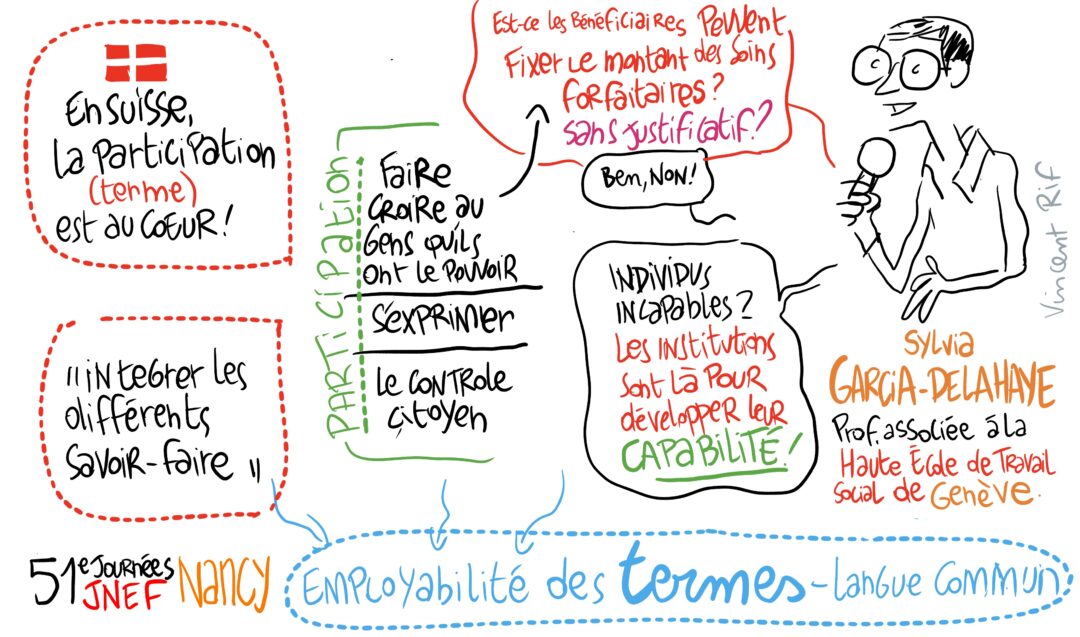 En Suisse,
la participation
(terme)
est au coeur !
"intégrer les
différents
savoir-faire"
PARTICIPation
Faire
croire au
Gens qu'ils
ont le pouvoir
S'EXPRIMER
Le contrôle
citoyen
Est-ce les Bénéficiaires Peuvent
Fixer le montant des soins
forfaitaires ?
sans justificatif ?
Ben, NON !
INDIVIDUS
INCAPABLES ?
Les institutions
sont là pour
développer leur
CAPABILITÉ !
Vincent Rif
Sylvia
GARCIA-DELAHAYE
Prof. associée à la
Haute École de Travail
Social de Genève.
51e Journées
JNEF Nancy
EMPLOYABILITÉ des termes - Langue commun